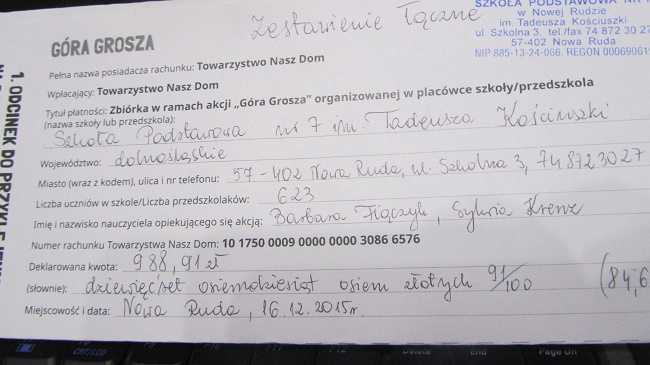 Zestawienie łączne
SZKOŁA PODSTAWOWA NR
w Nowej Rudzie
im. Tadeusza Kościuszki
ul. Szkolna 3, tel./fax 74 872 30 27
57-402 Nowa Ruda
NIP 885-13-24-066, REGON 00069061
GÓRA GROSZA
Pełna nazwa posiadacza rachunku: Towarzystwo Nasz Dom
Wpłacający: Towarzystwo Nasz Dom
Tytuł płatności: Zbiórka w ramach akcji „Góra Grosza” organizowanej w placówce szkoły/przedszkola
(nazwa szkoły lub przedszkola):
Szkoła Podstawowa nr 7 im. Tadeusza Kościuszki
Województwo: dolnośląskie
Miasto (wraz z kodem), ulica i nr telefonu: 57-402 Nowa Ruda, ul. Szkolna 3, 748723027
Liczba uczniów w szkole/Liczba przedszkolaków: 623
Imię i nazwisko nauczyciela opiekującego się akcją: Barbara , Sylwia
Numer rachunku Towarzystwa Nasz Dom: 10 1750 0009 0000 0000 3086 6576
Deklarowana kwota: 988,91 zł
(słownie): dziewięćset osiemdziesiąt osiem złotych 91/100 (84,6
Miejscowość i data: Nowa Ruda, 16.12.2015r.
1. ODCINEK DO
Delete End Page Dn